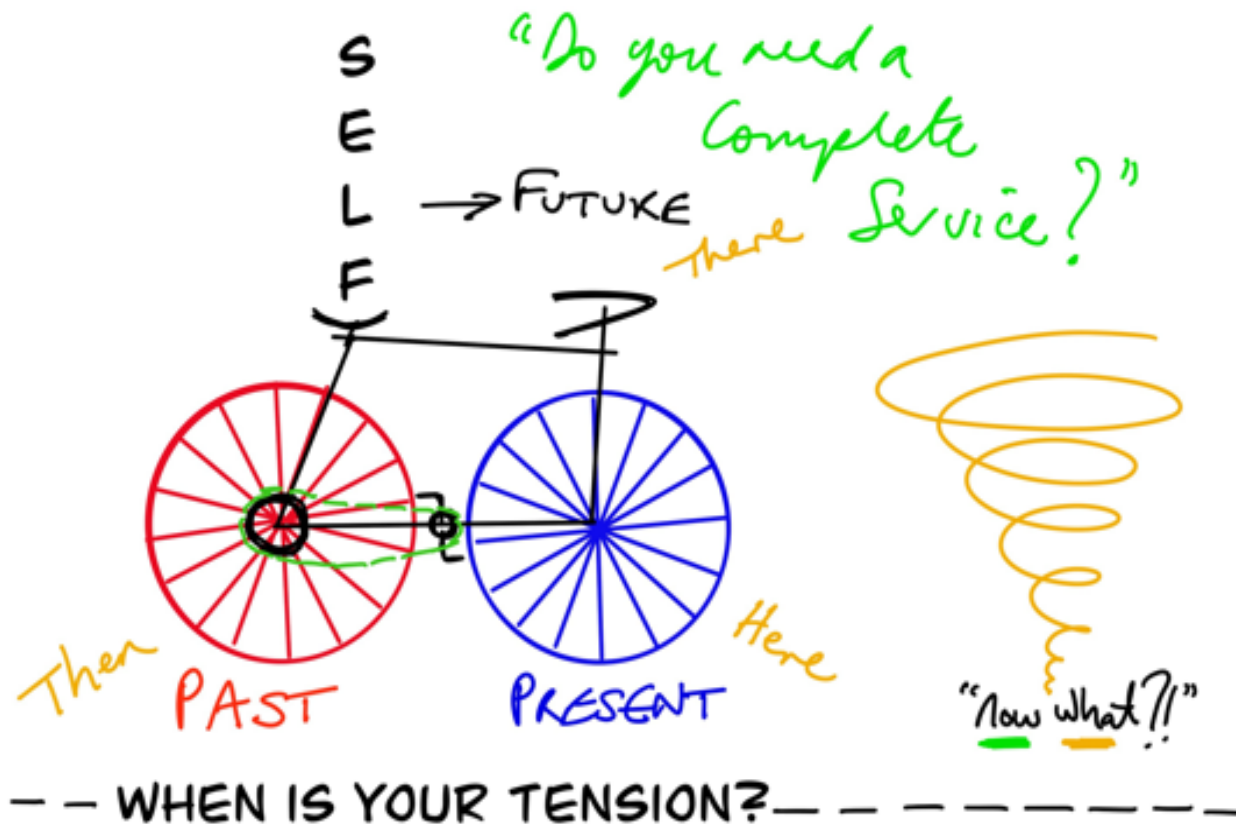 S
E
L
F
"Do you need a
Complete
Service?"
→ FUTURE
There
Then
PAST
PRESENT
Here
"Now what?!"
-- WHEN IS YOUR TENSION? --